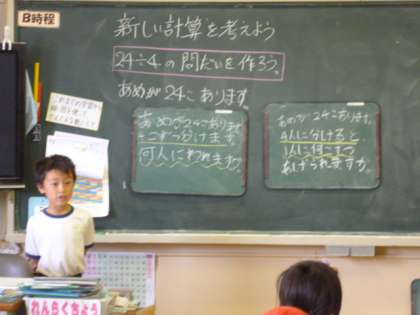 B時程
新しい計算を考えよう
24÷4の問だいを作ろう。
あめが24こあります。
あめが24こあります。
4こずつ分けます。
何人にわけれますか。
あめが24こあります。
4人に分けると、
1人に何こずつ
あげられますか。
れんらくちょう